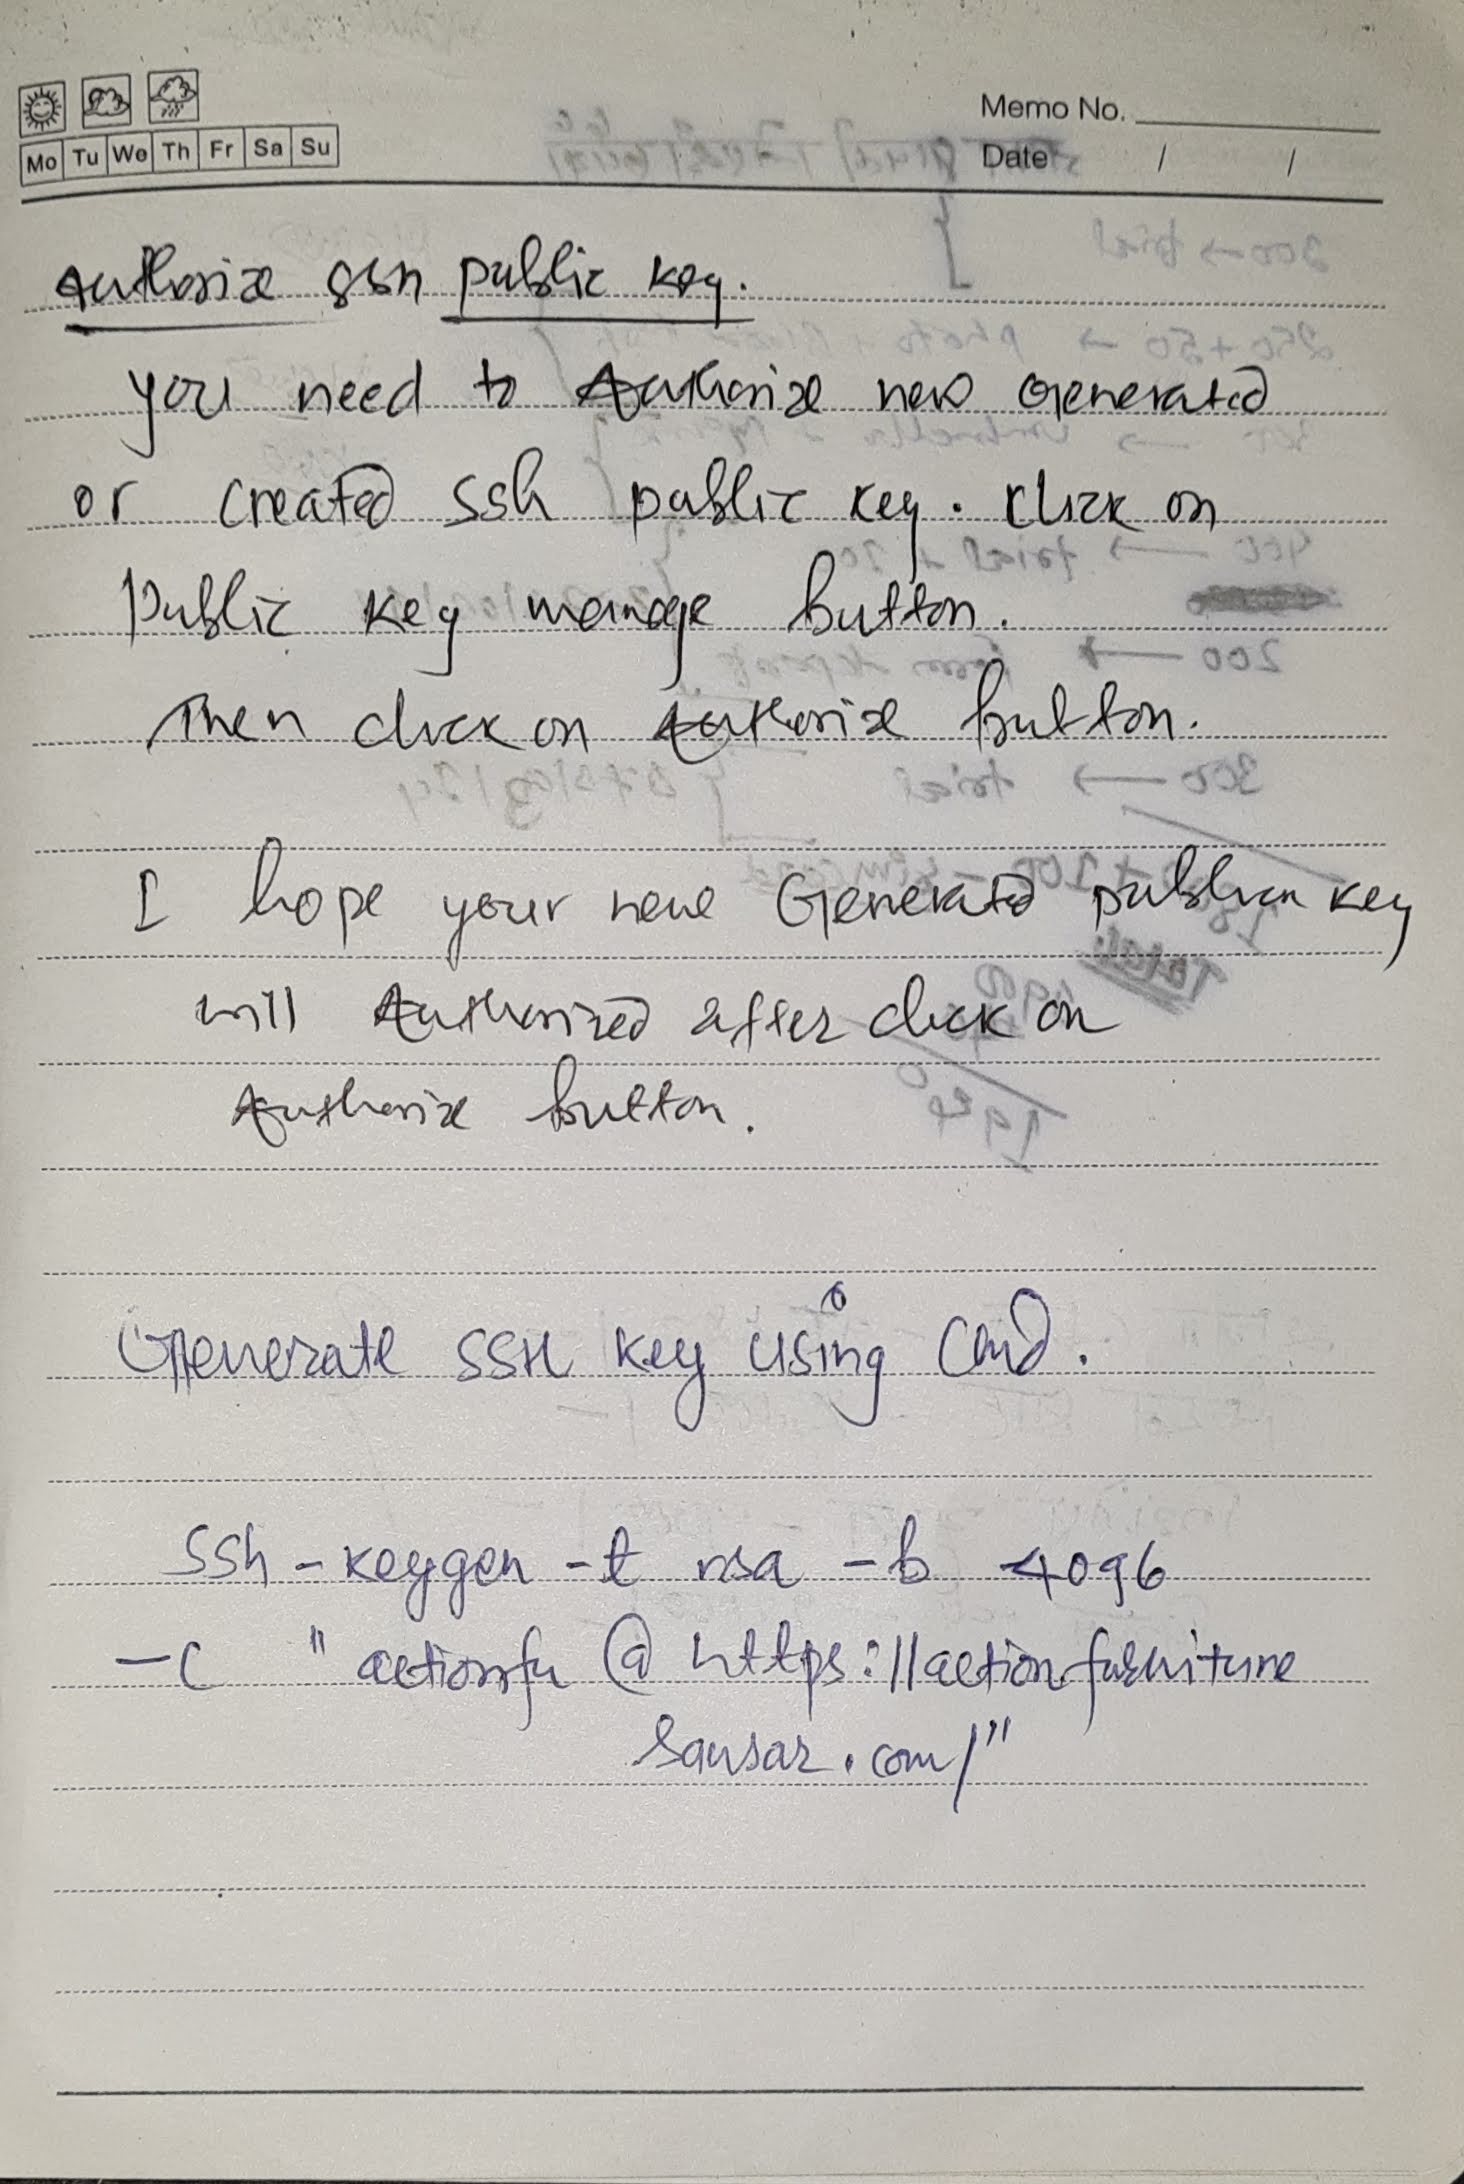 Memo No.
Mo Tu We Th Fr Sa Su
Date / /
Authorize ssh public key.
you need to Authorize new Generated
or created ssh public key. Click on
Public key manage button.
Then click on Authorize button.
I hope your new Generated publick key
will Authorized after click on
Authorize button.
Generate SSH key using Cmd.
ssh-keygen -t rsa -b 4096
-C "actionfu@https://actionfurniture
sansar.com/"